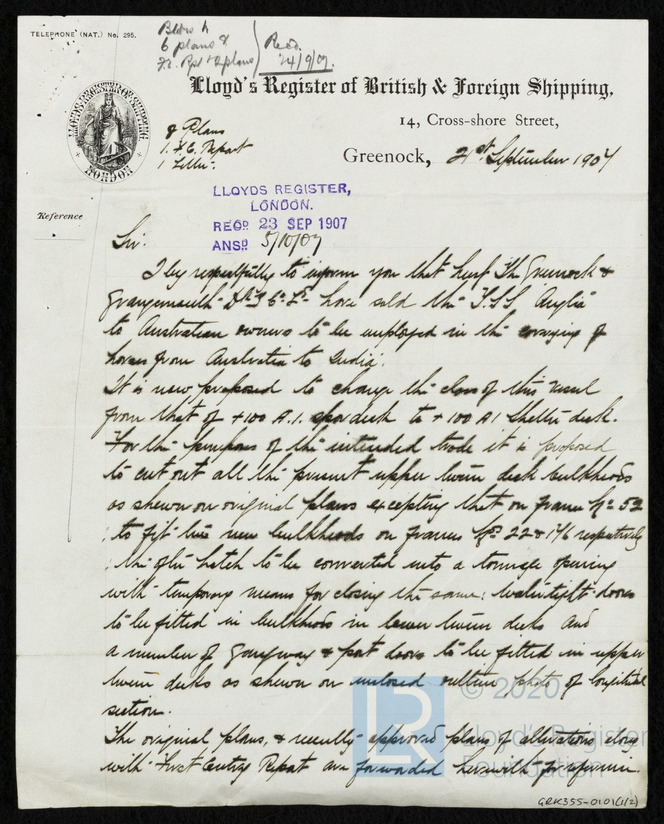 TELEPHONE (NAT.) No. 295.
6 plans &
Recd.
24/9/07.
Lloyd's Register of British & Foreign Shipping,
14, Cross-shore Street,
8 Plans
1. F.E. Report
1 Letter.
Greenock, 21st September 1907
LONDON
LLOYDS REGISTER,
LONDON.
RECD 23 SEP 1907
ANSD 5/10/07
Reference
Sir.
I beg respectfully to inform you that Messrs The Greenock &
Grangemouth Dkyd Co. Ld. have sold the T.S.S. Anglia
to Australian owners to be employed in the carrying of
horses from Australia to India.
It is now proposed to change the class of this vessel
from that of +100 A.1. spar deck to +100 A1 Shelter deck.
For the purposes of the intended trade it is proposed
to cut out all the present upper tween deck bulkheads
as shewn on original plans excepting that on frame No. 52
, to fit two new bulkheads on frames Nos 22 & 146 respectively
, the aft hatch to be converted into a tonnage opening
with temporary means for closing the same; Watertight doors
to be fitted in bulkheads in lower tween decks and
a number of gangway & port doors to be fitted in upper
tween decks as shewn on enclosed outline plan of longitudinal
section.
The original plans, & recently approved plans of alterations along
with First Entry Report are forwarded herewith for
© 2020
Lloyd's Register
Foundation
GRK355-0101(1/2)